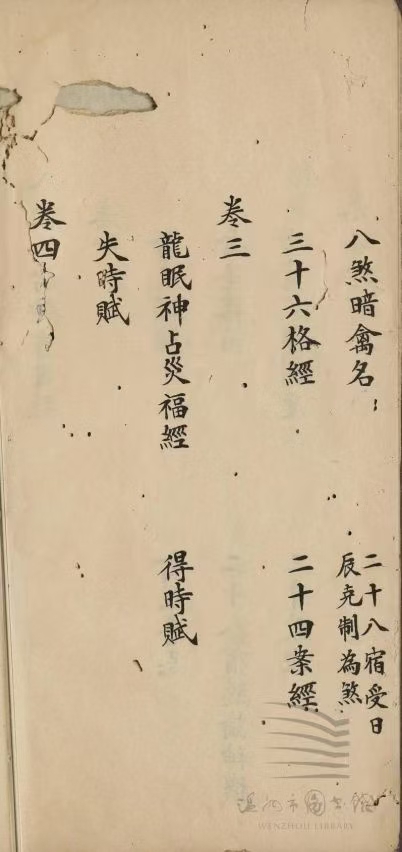 八煞暗禽名
二十八宿受日
辰克制為煞
三十六格經
二十四案經
卷三
龍眠神占災福經
得時賦
失時賦
卷四
溫州市圖書館
WENZHOU LIBRARY